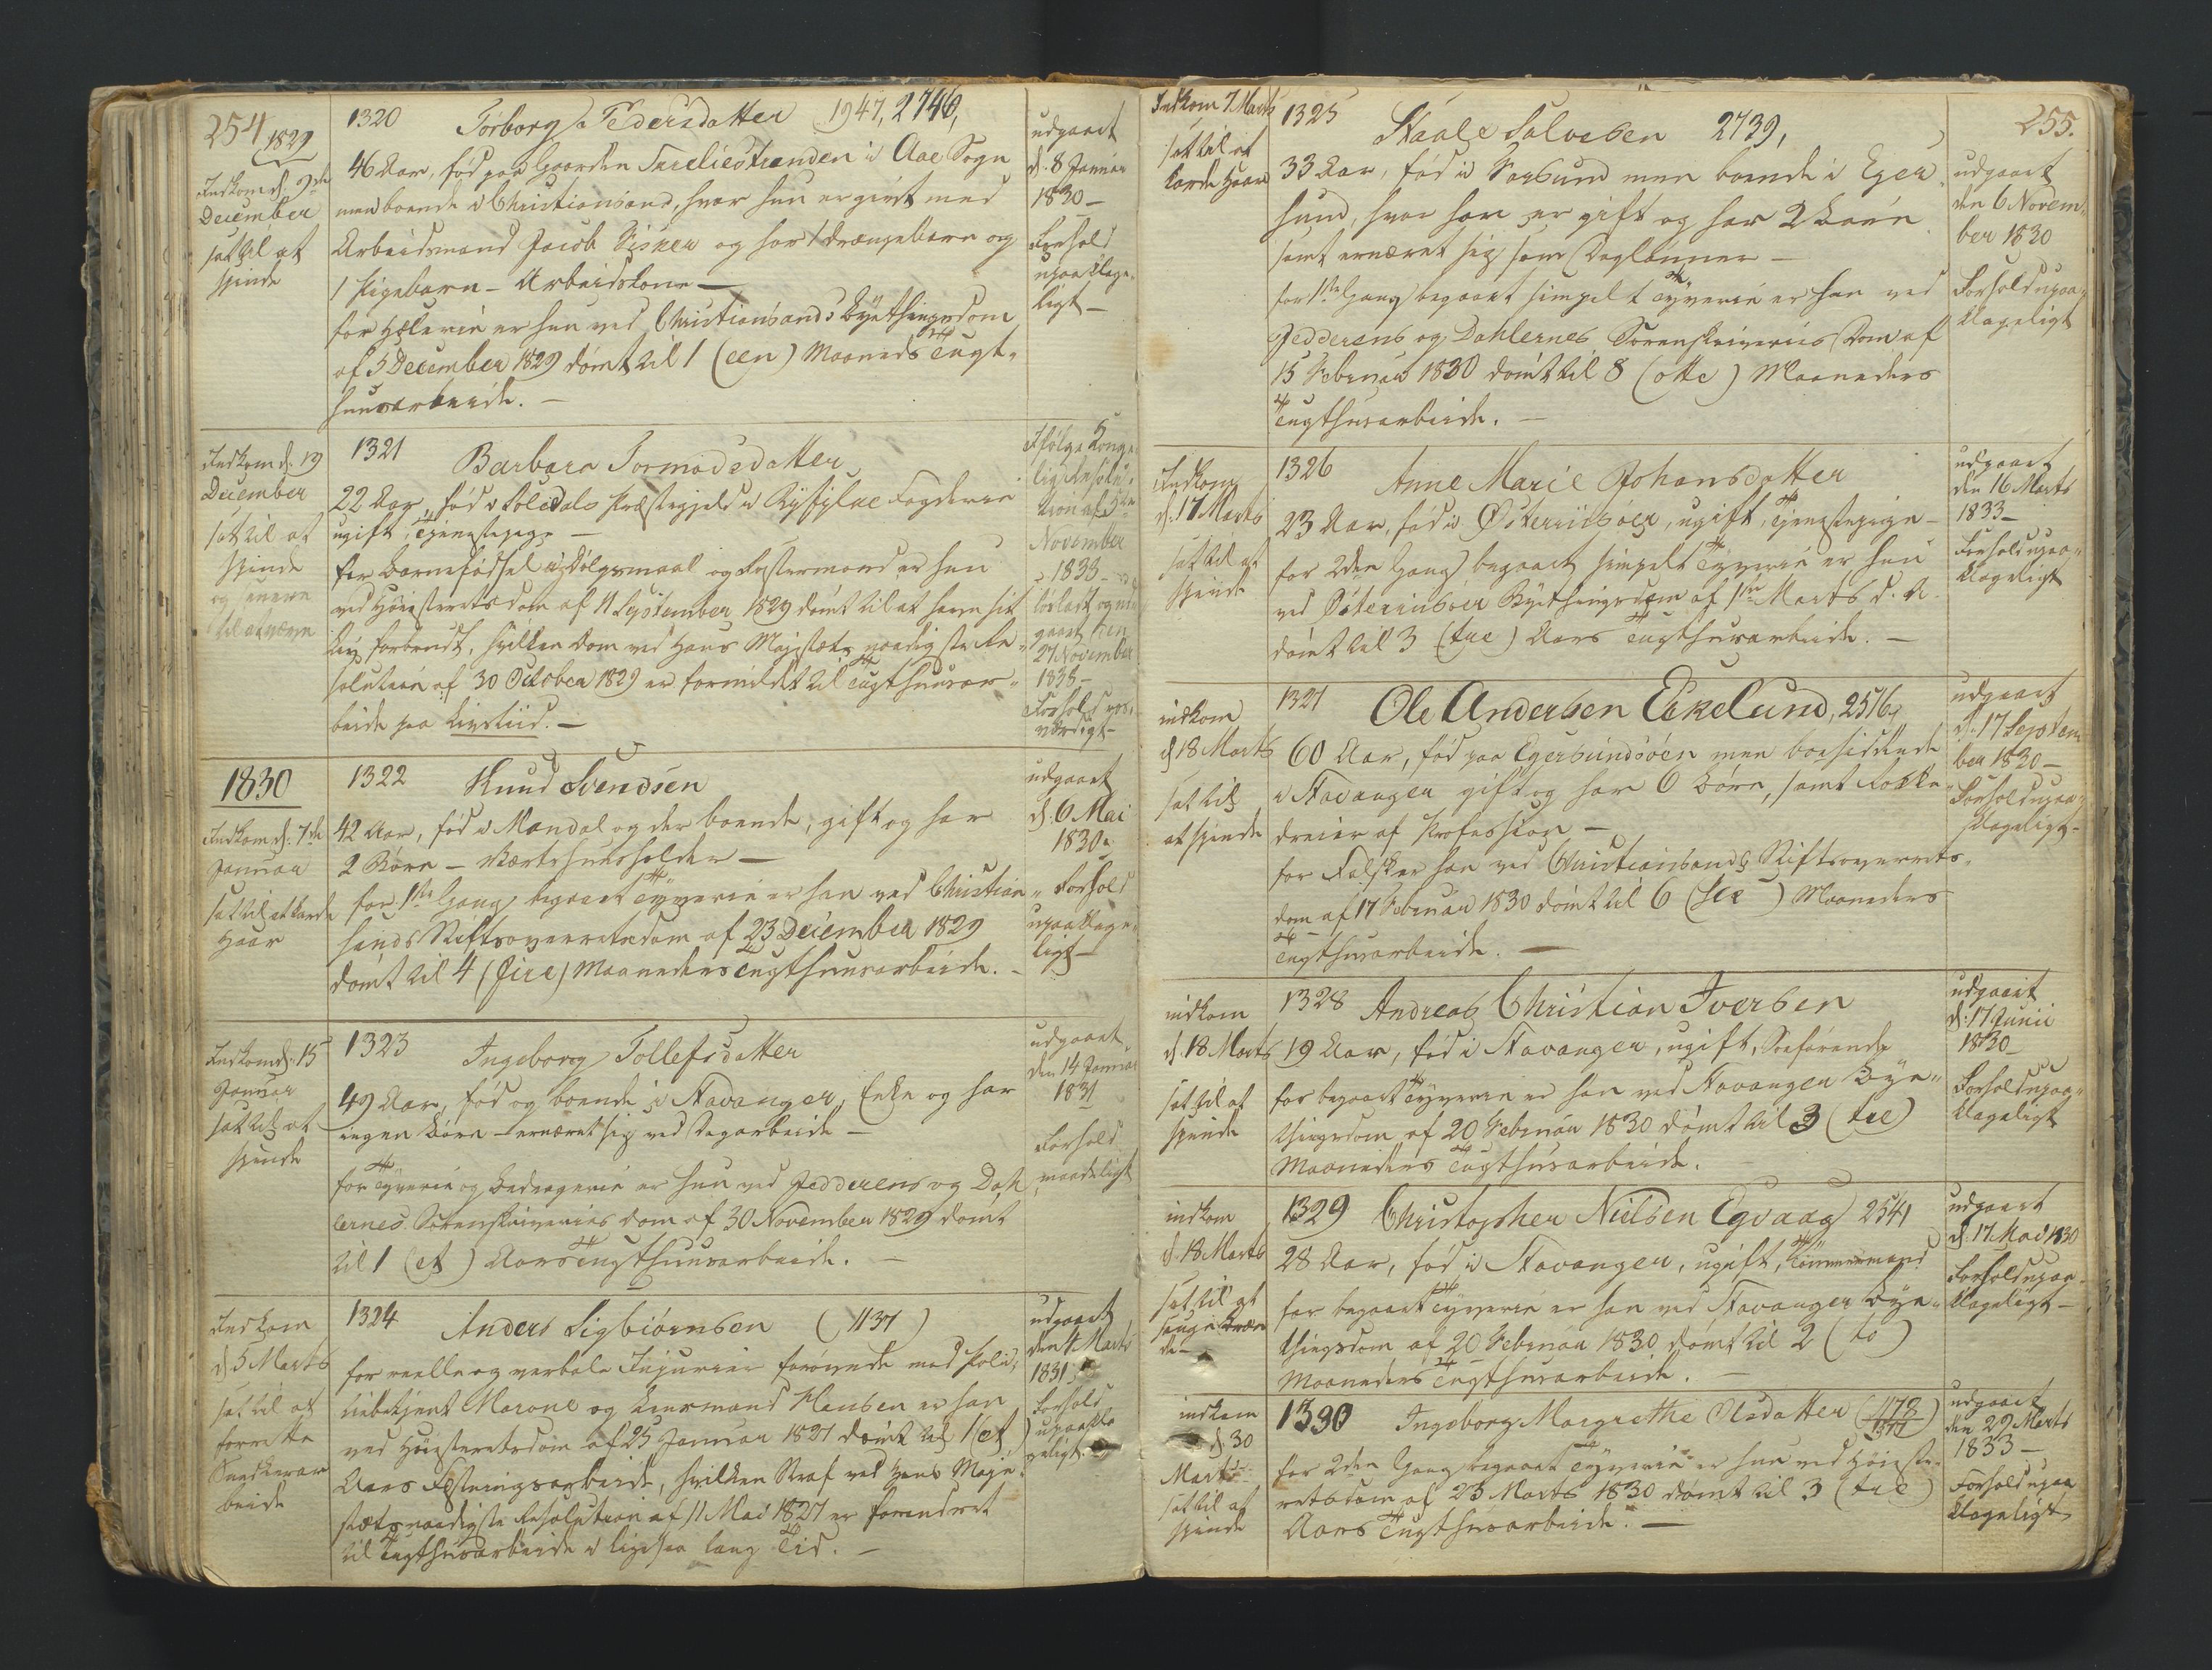 254
1829
Indkom d. 9de
December
sat til at
spinde
1320 Torborg Pedersdatter 1947, 2746,
46 Aar, fød paa Gaarden i Aae Sogn
men boende i Christiansand, hvor hun er givt med
Arbeidsmand Jacob og har 1 Drængebarn og
1 Pigebarn - Arbeidskone -
for Hæleri er hun ved Christiansands Byethingsdom
af 5 December 1829 dømt til 1 (een) Maaneds Tugt-
huusarbeide. -
udgaaet
d. 8 Januar
1830 -
Forhold
upaaklage-
ligt -
Indkom d. 19
December
sat til at
spinde
og senere
til at væve
1321 Barbara Tormodsdatter
22 Aar, fød i Soledals Præstegjeld i Ryfylke Fogderie
ugift, Tjenestepige -
for Barnefødsel i Dølgsmaal og Fostermord er hun
ved Høiesteretsdom af 11 September 1829 dømt til at have sit
Liv forbrudt, hvilken Dom ved Hans Majestæts naadigste Re-
solution af 30 October 1829 er formildet til Tugthuusar-
beide paa Livstiid. -
Ifølge Konge-
lig Resolu-
tion af 5te
November
1838
løsladt og ud-
gaaet den
27 November
1838 -
Forhold ros-
værdigt -
1830
Indkom d. 7de
Januar
sat til at karde
Haar
1322 Knud Svendsen
42 Aar, fød i Mandal og der boende, gift og har
2 Børn - Værtshuusholder -
for 1ste Gang begaaet Tyverie er han ved Christian-
sands Stiftsoverretsdom af 23 December 1829
dømt til 4 (fire) Maaneders Tugthuusarbeide. -
udgaaet
d. 6 Mai
1830.
Forhold
upaaklage-
ligt -
Indkom d. 15
Januar
sat til at
spinde
1323 Ingeborg Tollefsdatter
49 Aar, fød og boende i Stavanger, Enke og har
ingen Børn - ernæret sig ved Dagarbeide -
for Tyverie og Bedragerie er hun ved Jedderens og Dah-
lernes Sorenskriveries Dom af 30 November 1829 dømt
til 1 (et) Aars Tugthuusarbeide. -
udgaaet
den 14 Januar
1831
Forhold
maadeligt
Indkom
d. 5 Marts
sat til at
forrette
Snedkerar
beide
1324 Anders Sigbiørnsen (1137)
for reelle og verbale Injurier forøvede mod Poli-
tiebetjent Marone og Lensmand Hansen er han
ved Høiesteretsdom af 25 Januar 1827 dømt til 1 (et)
Aars Fæstningsarbeide, hvilken Straf ved Hans Maje-
stæts naadigste Resolution af 11 Mai 1827 er forandret
til Tugthusarbeide i ligesaa lang Tid. -
udgaaet
den 4 Marts
1831
Forhold
upaakla
geligt
Indkom 7 Marts
sat til at
karde Haar
1325 Staale Salvesen 2739,
33 Aar, fød i Farsund men boende i Eger-
sund, hvor han er gift og har 2 Børn
samt ernæret sig som Dagleinner -
for 1ste Gang begaaet simpelt Tyverie er han ved
Jedderens og Dahlernes Sorenskriveries Dom af
15 Februar 1830 dømt til 8 (otte) Maaneders
Tugthusarbeide. -
255.
udgaaet
den 6 Novem-
ber 1830
Forhold upaa-
klageligt
Indkom
d. 17 Marts
sat til at
spinde
1326 Anne Marie Johansdatter
23 Aar, fød i Østeriisøer, ugift, Tjenestepige -
for 2den Gang begaaet simpelt Tyverie er hun
ved Østeriisøer Byethingsdom af 1ste Marts d. A.
dømt til 3 (tre) Aars Tugthusarbeide. -
udgaaet
den 16 Marts
1833 -
Forhold upaa-
klageligt
indkom
d. 18 Marts
sat til
at spinde
1327 Ole Andersen Eekelund, 2516,
60 Aar, fød paa Egersundsøen men boesiddende
i Stavanger gift og har 6 Børn, samt Rokke-
dreier af Profession -
for Falsk er han ved Christiansands Stiftsoverrets-
dom af 17 Februar 1830 dømt til 6 (sex) Maaneders
Tugthusarbeide. -
udgaaet
d. 17 Septem
ber 1830 -
Forhold upaa-
klageligt -
indkom
d. 18 Marts
sat til at
spinde
1328 Andreas Christian Iversen
19 Aar, fød i Stavanger, ugift, Søefarende
for begaaet Tyverie er han ved Stavanger Bye-
thingsdom af 20 Februar 1830 dømt til 3 (tre)
Maaneders Tugthusarbeide.
udgaaet
d. 17 Junii
1830 -
Forhold upaa-
klageligt
indkom
d. 18 Marts
sat til at
sauge Bræn
de -
1329 Christopher Nielsen Egvaag 2541
28 Aar, fød i Stavanger, ugift, Tømmermand
for begaaet Tyverie er han ved Stavanger Bye-
thingsdom af 20 Februar 1830 dømt til 2 (to)
Maaneders Tugthusarbeide. -
udgaaet
d. 17 Mai 1830
Forhold upaa-
klageligt -
indkom
d. 30
Marts
sat til at
spinde
1330 Ingeborg Margrethe Olsdatter (1173)
for 2den Gang begaaet Tyverie er hun ved Høieste-
retsdom af 23 Marts 1830 dømt til 3 (tre)
Aars Tugthusarbeide. -
udgaaet
den 29 Marts
1833 -
Forhold upaa
klageligt